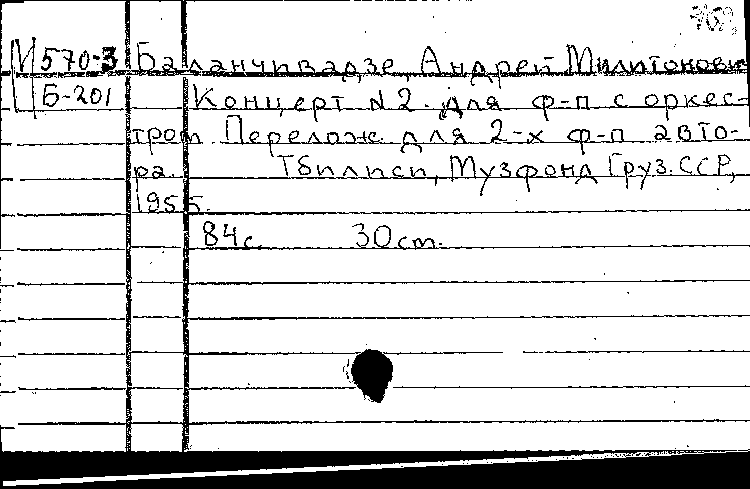 М 570-3 Баланчивадзе, Андрей Милитонович
Б-201 Концерт N2 для ф-п с оркес-
тром. Перелож. для 2-х ф-п авто-
ра. Тбилиси, Музфонд Груз.ССР,
1955.
84с. 30cm.